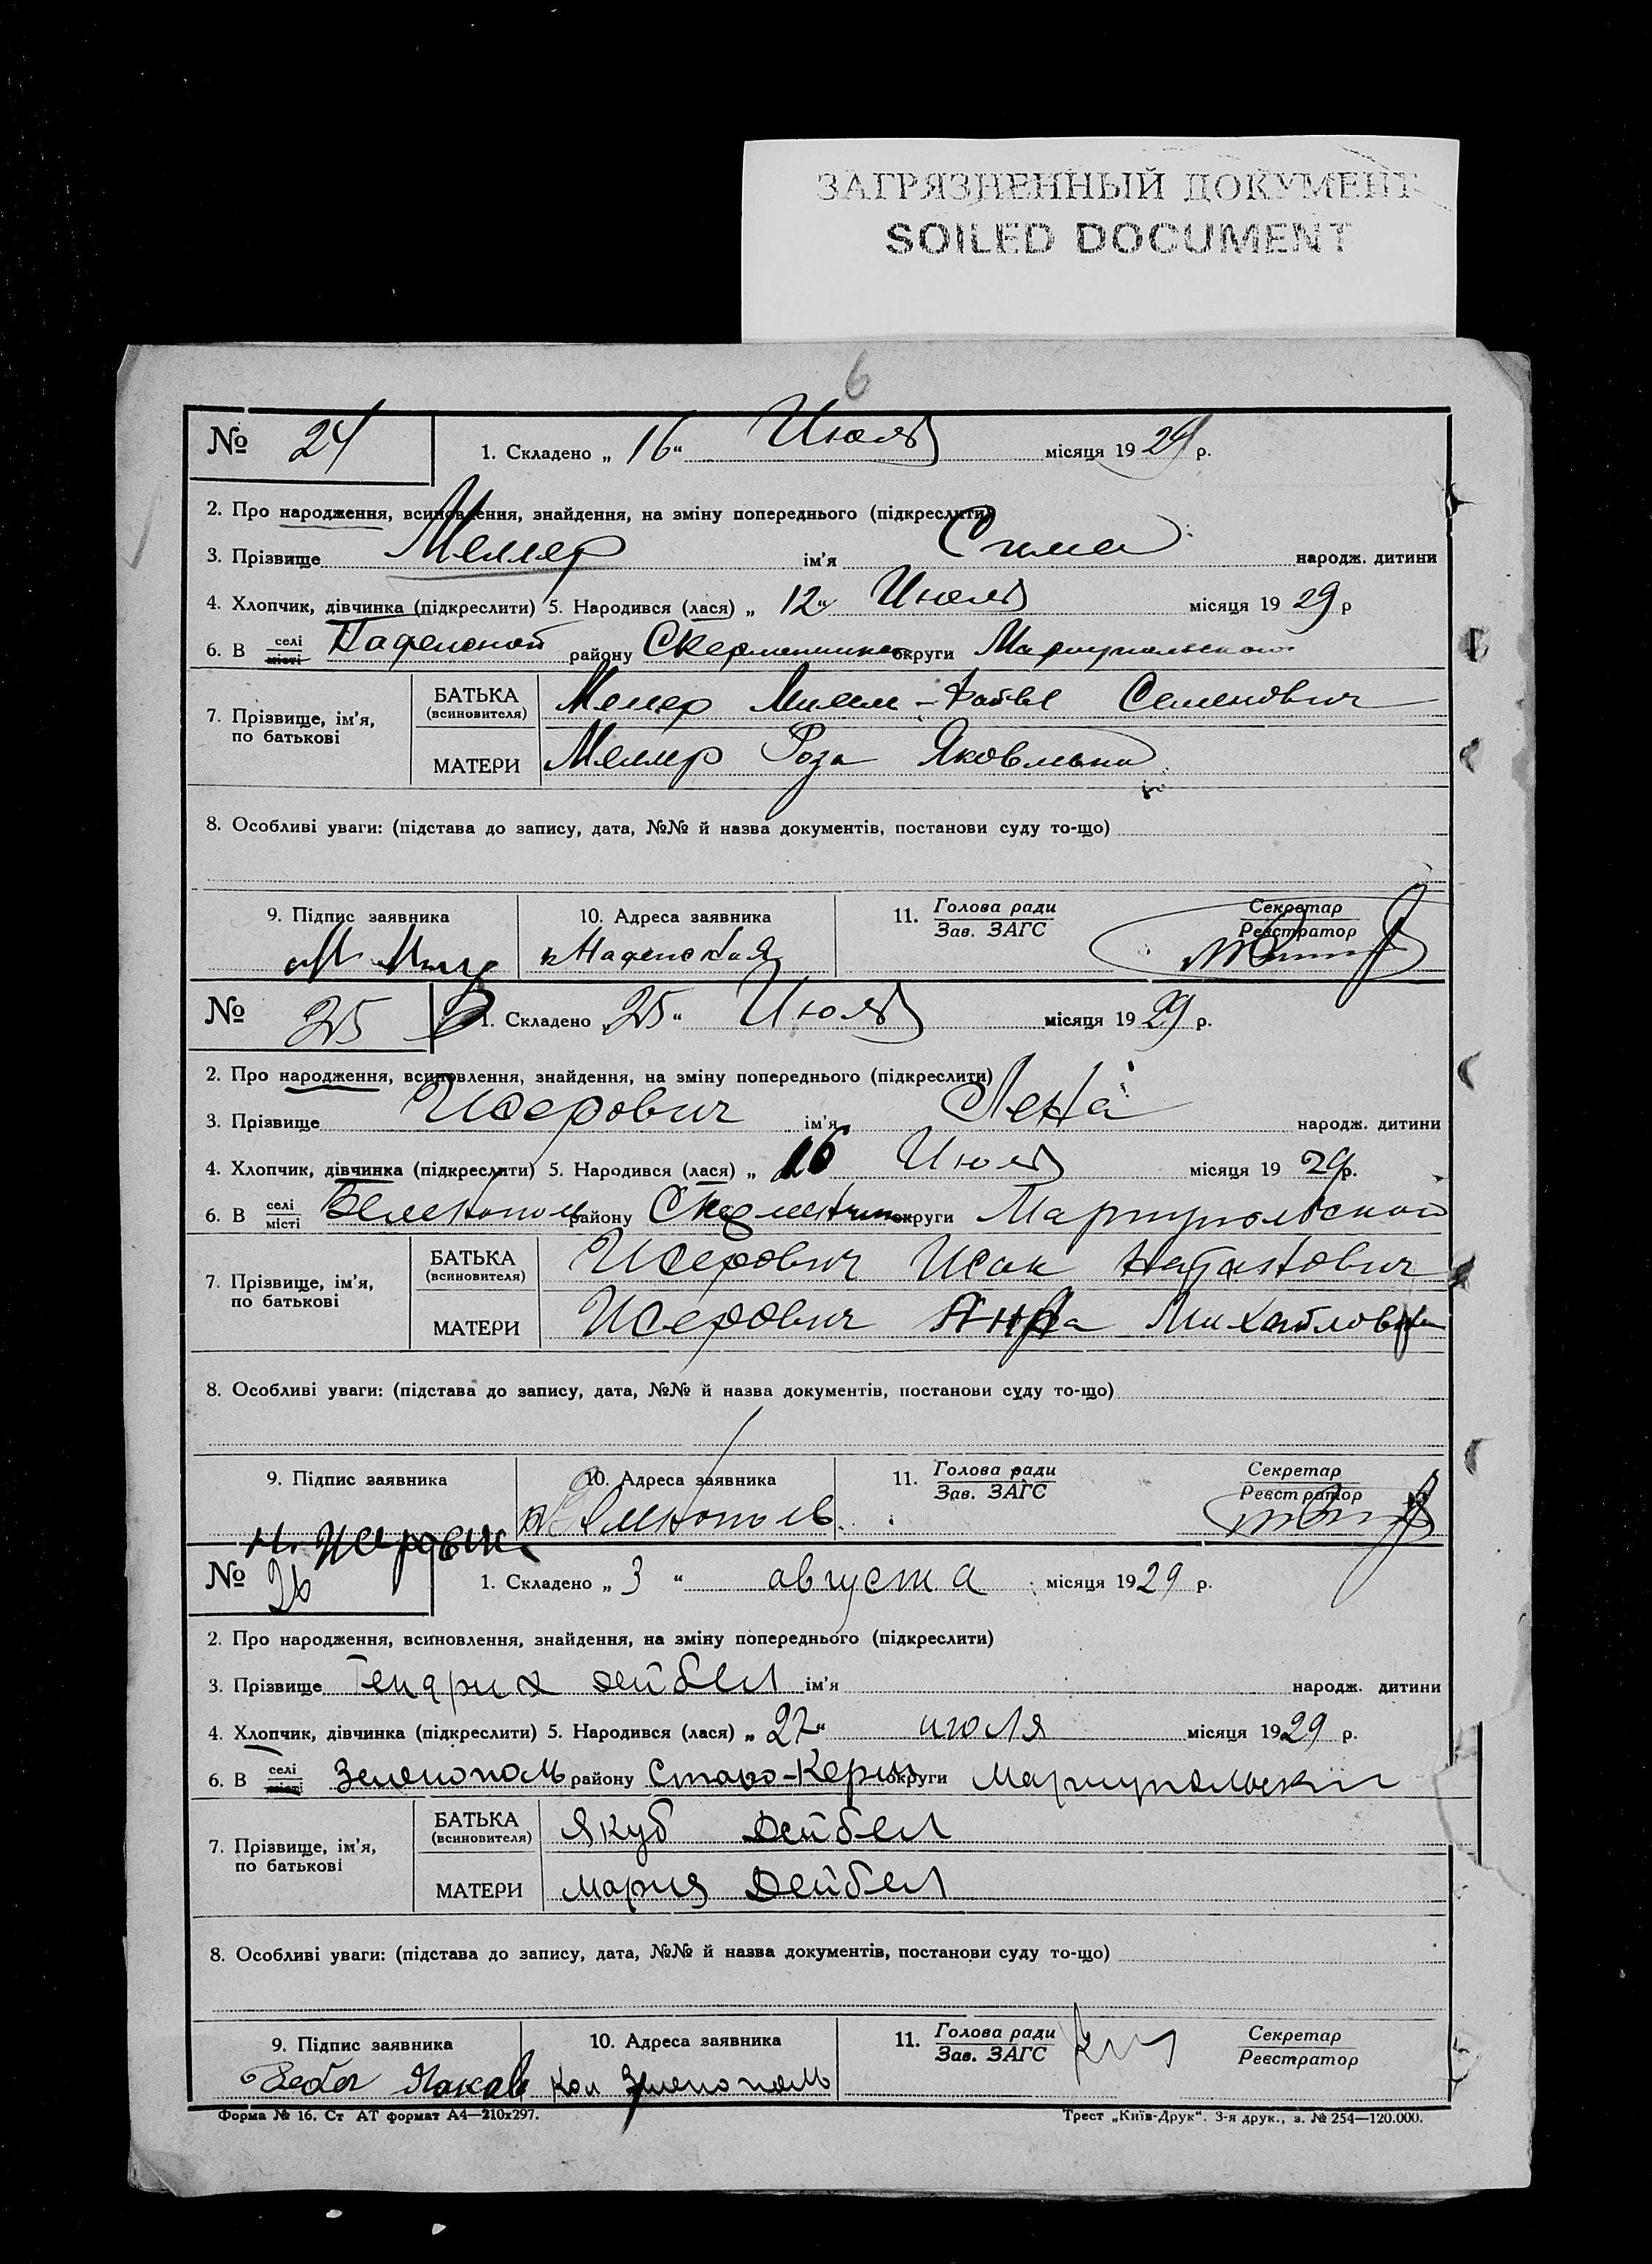 ЗАГРЯЗНЕННЫЙ ДОКУМЕНТ
SOILED DOCUMENT
6
№ 24 1. Складено „ 16 “ Июля місяця 1929 р.
2. Про народження, всиновлення, знайдення, на зміну попереднього (підкреслити)
3. Прізвище Меллер ім'я Сима народж. дитини
4. Хлопчик, дівчинка (підкреслити) 5. Народився (лася) „ 12 “ Июля місяця 1929 р
6. В селі місті району округи Мариупольской
7. Прізвище, ім'я, по батькові
БАТЬКА (всиновителя) Мелер - Файвел Семенович
МАТЕРИ Меллер Роза Яковльна
8. Особливі уваги: (підстава до запису, дата, №№ й назва документів, постанови суду то-що)
9. Підпис заявника 10. Адреса заявника 11. Голова ради Зав. ЗАГС Секретар Реєстратор
№ 25 1. Складено „ 25 “ Июля місяця 1929 р.
2. Про народження, всиновлення, знайдення, на зміну попереднього (підкреслити)
3. Прізвище Исерович ім'я Лена народж. дитини
4. Хлопчик, дівчинка (підкреслити) 5. Народився (лася) „ 16 Июля місяця 1929 р.
6. В селі місті району округи Мариупольской
7. Прізвище, ім'я, по батькові
БАТЬКА (всиновителя) Исерович Исак Натанович
МАТЕРИ Исерович Анна Михайловна
8. Особливі уваги: (підстава до запису, дата, №№ й назва документів, постанови суду то-що)
9. Підпис заявника 10. Адреса заявника 11. Голова ради Зав. ЗАГС Секретар Реєстратор
И. Исерович
№ 26 1. Складено „ 3 “ августа місяця 1929 р.
2. Про народження, всиновлення, знайдення, на зміну попереднього (підкреслити)
3. Прізвище Гендрих Дейбел ім'я народж. дитини
4. Хлопчик, дівчинка (підкреслити) 5. Народився (лася) „ 27 “ июля місяця 1929 р.
6. В селі місті Зеленополь району Старо-Керм округи
7. Прізвище, ім'я, по батькові
БАТЬКА (всиновителя) Якуб Дейбел
МАТЕРИ Мария Дейбел
8. Особливі уваги: (підстава до запису, дата, №№ й назва документів, постанови суду то-що)
9. Підпис заявника 10. Адреса заявника 11. Голова ради Зав. ЗАГС Секретар Реєстратор
Якав кол Зеленополь
Форма № 16. Ст АТ формат А4—210x297. Трест „Київ-Друк“. 3-я друк., з. № 254—120.000.